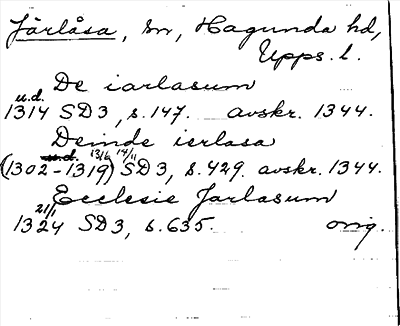 Järlåsa, sn, Hagunda hd,
Upps. l.
De iarlasum
u.d.
1314 SD3, s. 147. avskr. 1344.
Deinde ierlasa
(1302 - 13 13/6 19) 14/11 SD3, s. 429. avskr. 1344.
Ecclesie Jarlasum
21/1
1324 SD3, s. 635. orig.